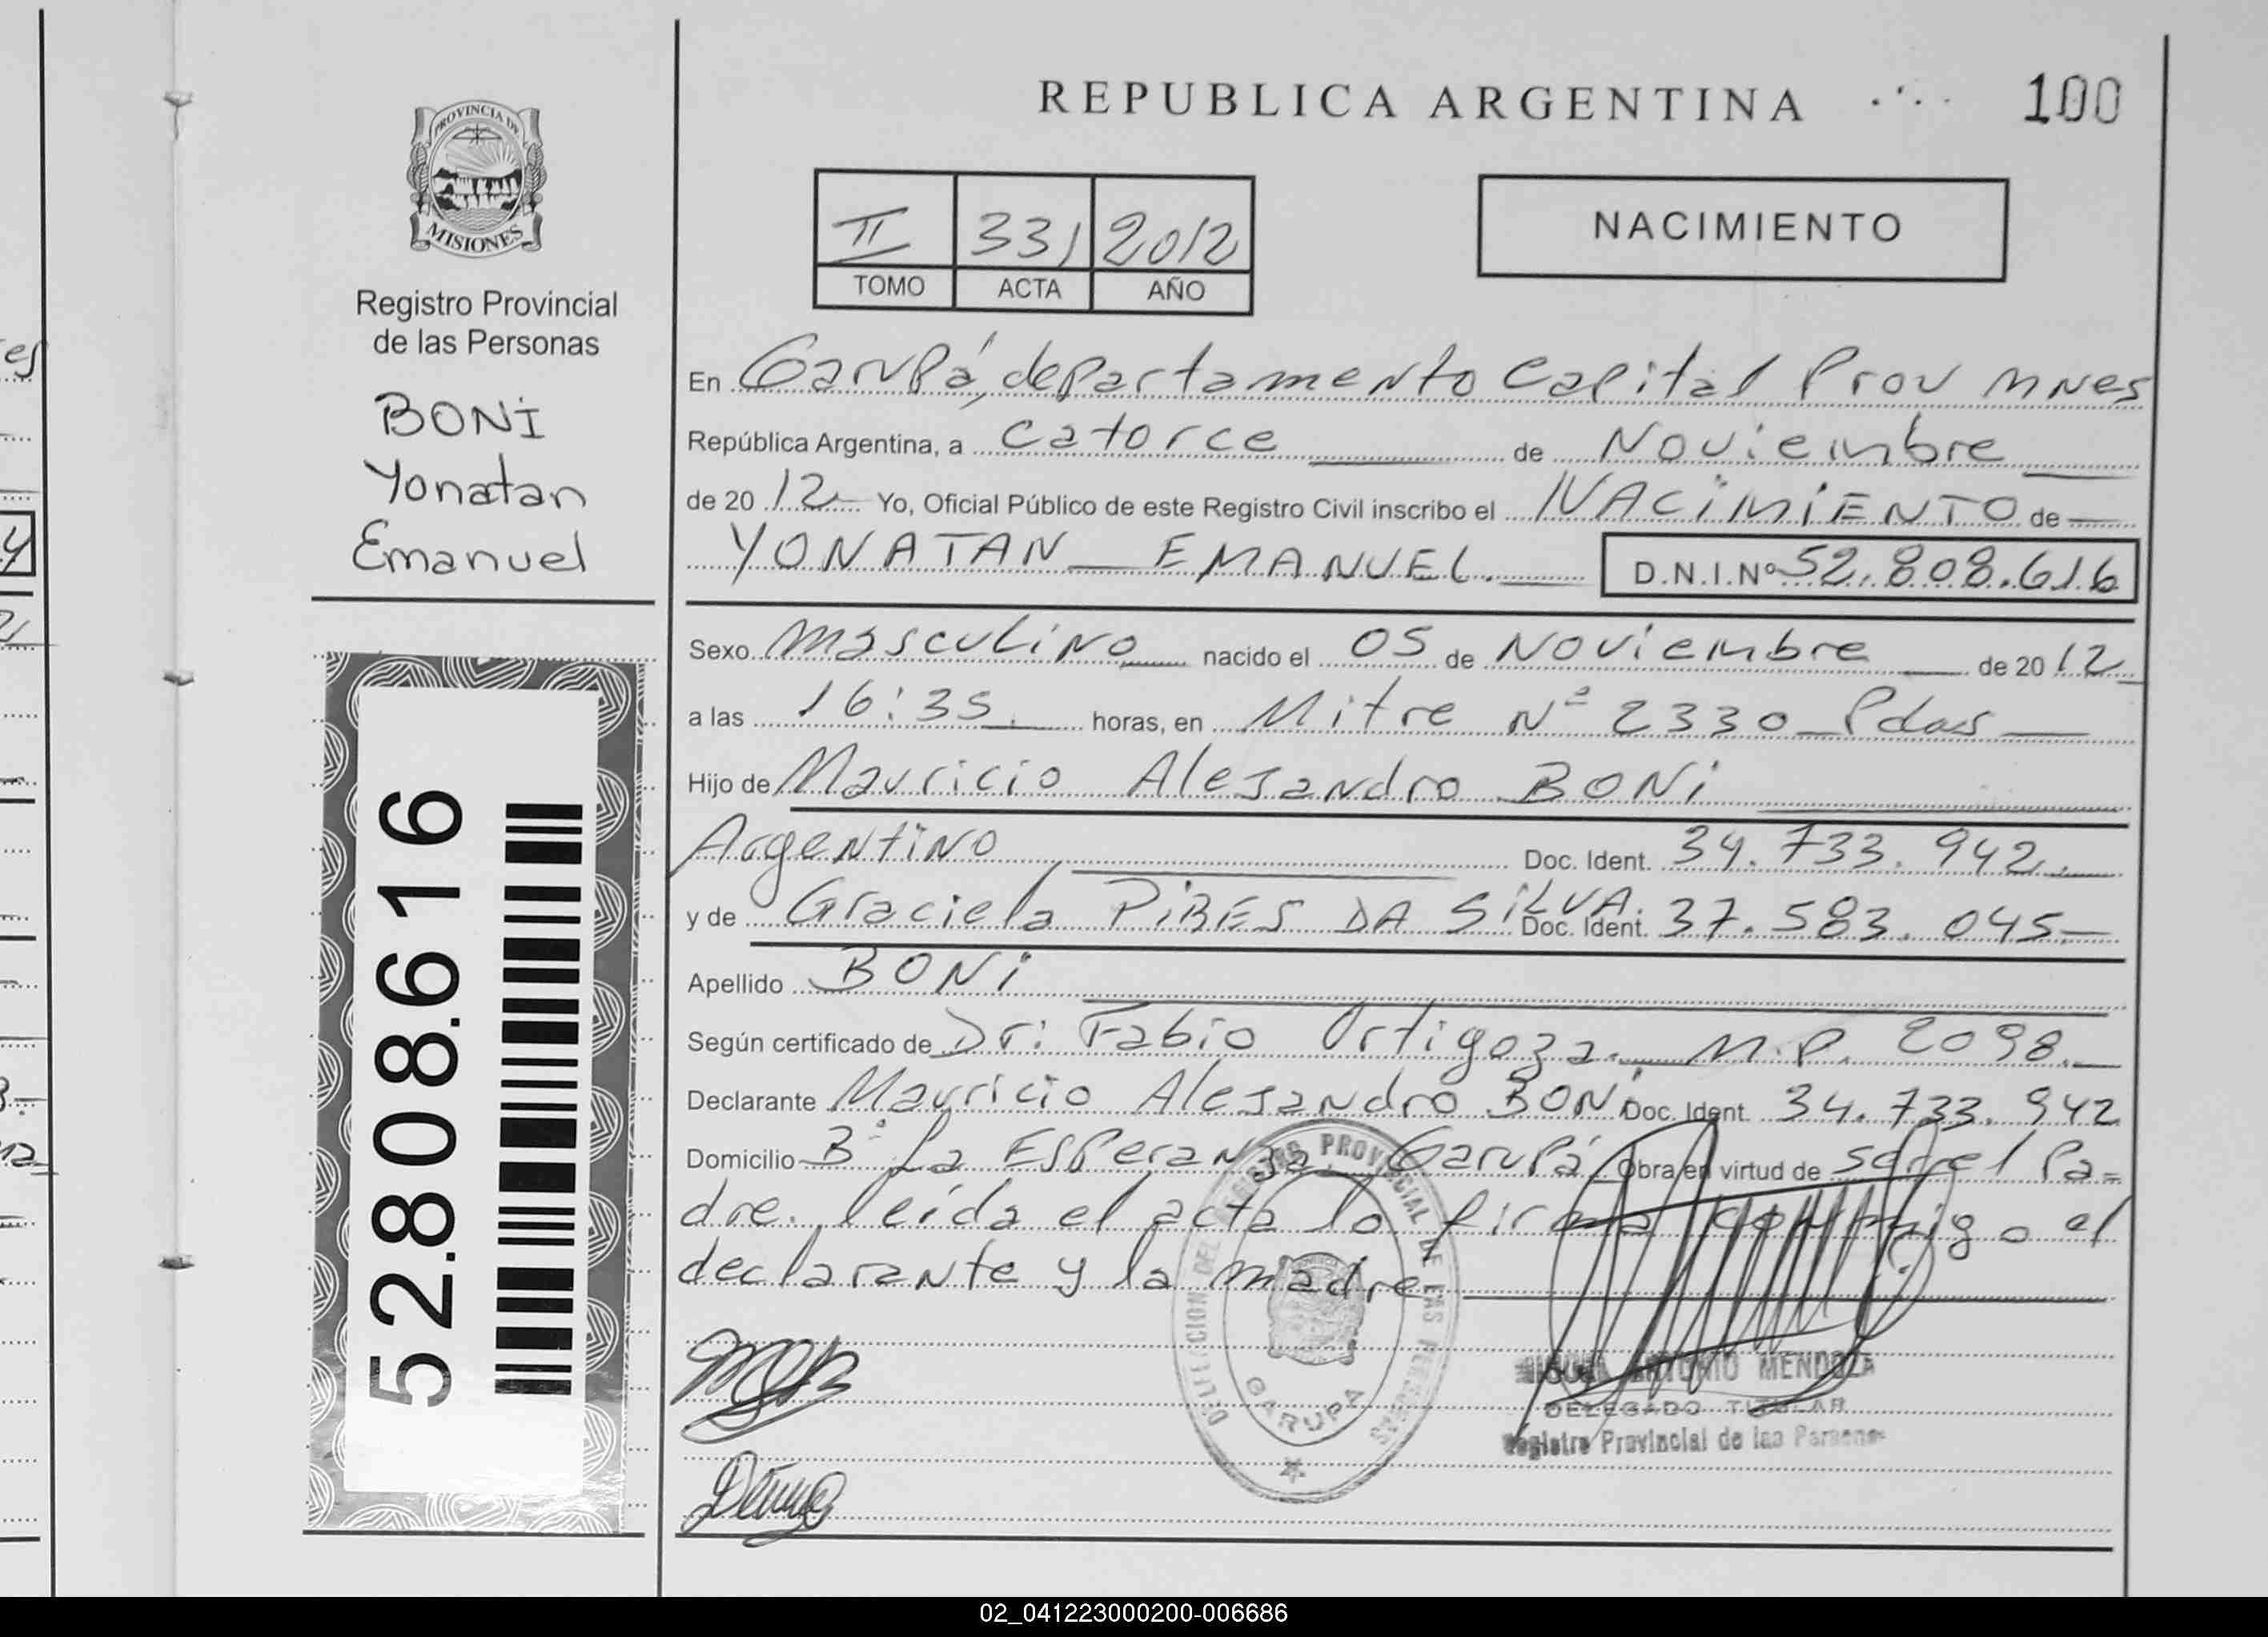 REPUBLICA ARGENTINA
100
PROVINCIA DE
MISIONES
Registro Provincial
de las Personas
BONI
Yonatan
Emanuel
52.808.616
II 331 2012
TOMO ACTA AÑO
NACIMIENTO
En Garupá, departamento Capital Prov Mnes
República Argentina, a catorce de Noviembre
de 20 12 Yo, Oficial Público de este Registro Civil inscribo el NACIMIENTO de
YONATAN EMANUEL. D.N.I.Nº 52.808.616
Sexo masculino nacido el 05 de Noviembre de 20 12
a las 16:35. horas, en Mitre Nº 2330 Pdas
Hijo de Mauricio Alejandro BONI
Argentino Doc. Ident. 34.733.942.
y de Graciela PIRES DA SILVA. Doc. Ident. 37.583.045
Apellido BONI
Según certificado de Dr: Fabio Ortigoza. M.P. 2098.
Declarante Mauricio Alejandro BONI Doc. Ident. 34.733.942
Domicilio Bº La Esperanza, Garupá Obra en virtud de ser el Pa=
dre. leída el acta lo firma conmigo el
declarante y la madre
DELEGACION DEL REGISTRO PROVINCIAL DE LAS PERSONAS
GARUPA
MIGUEL ANTONIO MENDOZA
DELEGADO TITULAR
Registro Provincial de las Personas
02_041223000200-006686